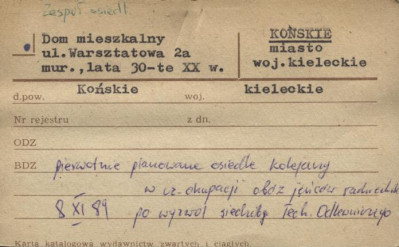 Zespół osiedl
Dom mieszkalny
ul.Warsztatowa 2a
mur.,lata 30-te XX w.
KOŃSKIE
miasto
woj.kieleckie
d.pow. Końskie woj. kieleckie
Nr rejestru z dn.
ODZ
BDZ pierwotnie planowane osiedle kolejowy
w cz. okupacji obóz jeńców radzieckich
8 XI 89 po wyzwol siedziby Tech. Odlewniczego
Karta katalogowa wydawnictw zwartych i ciągłych.